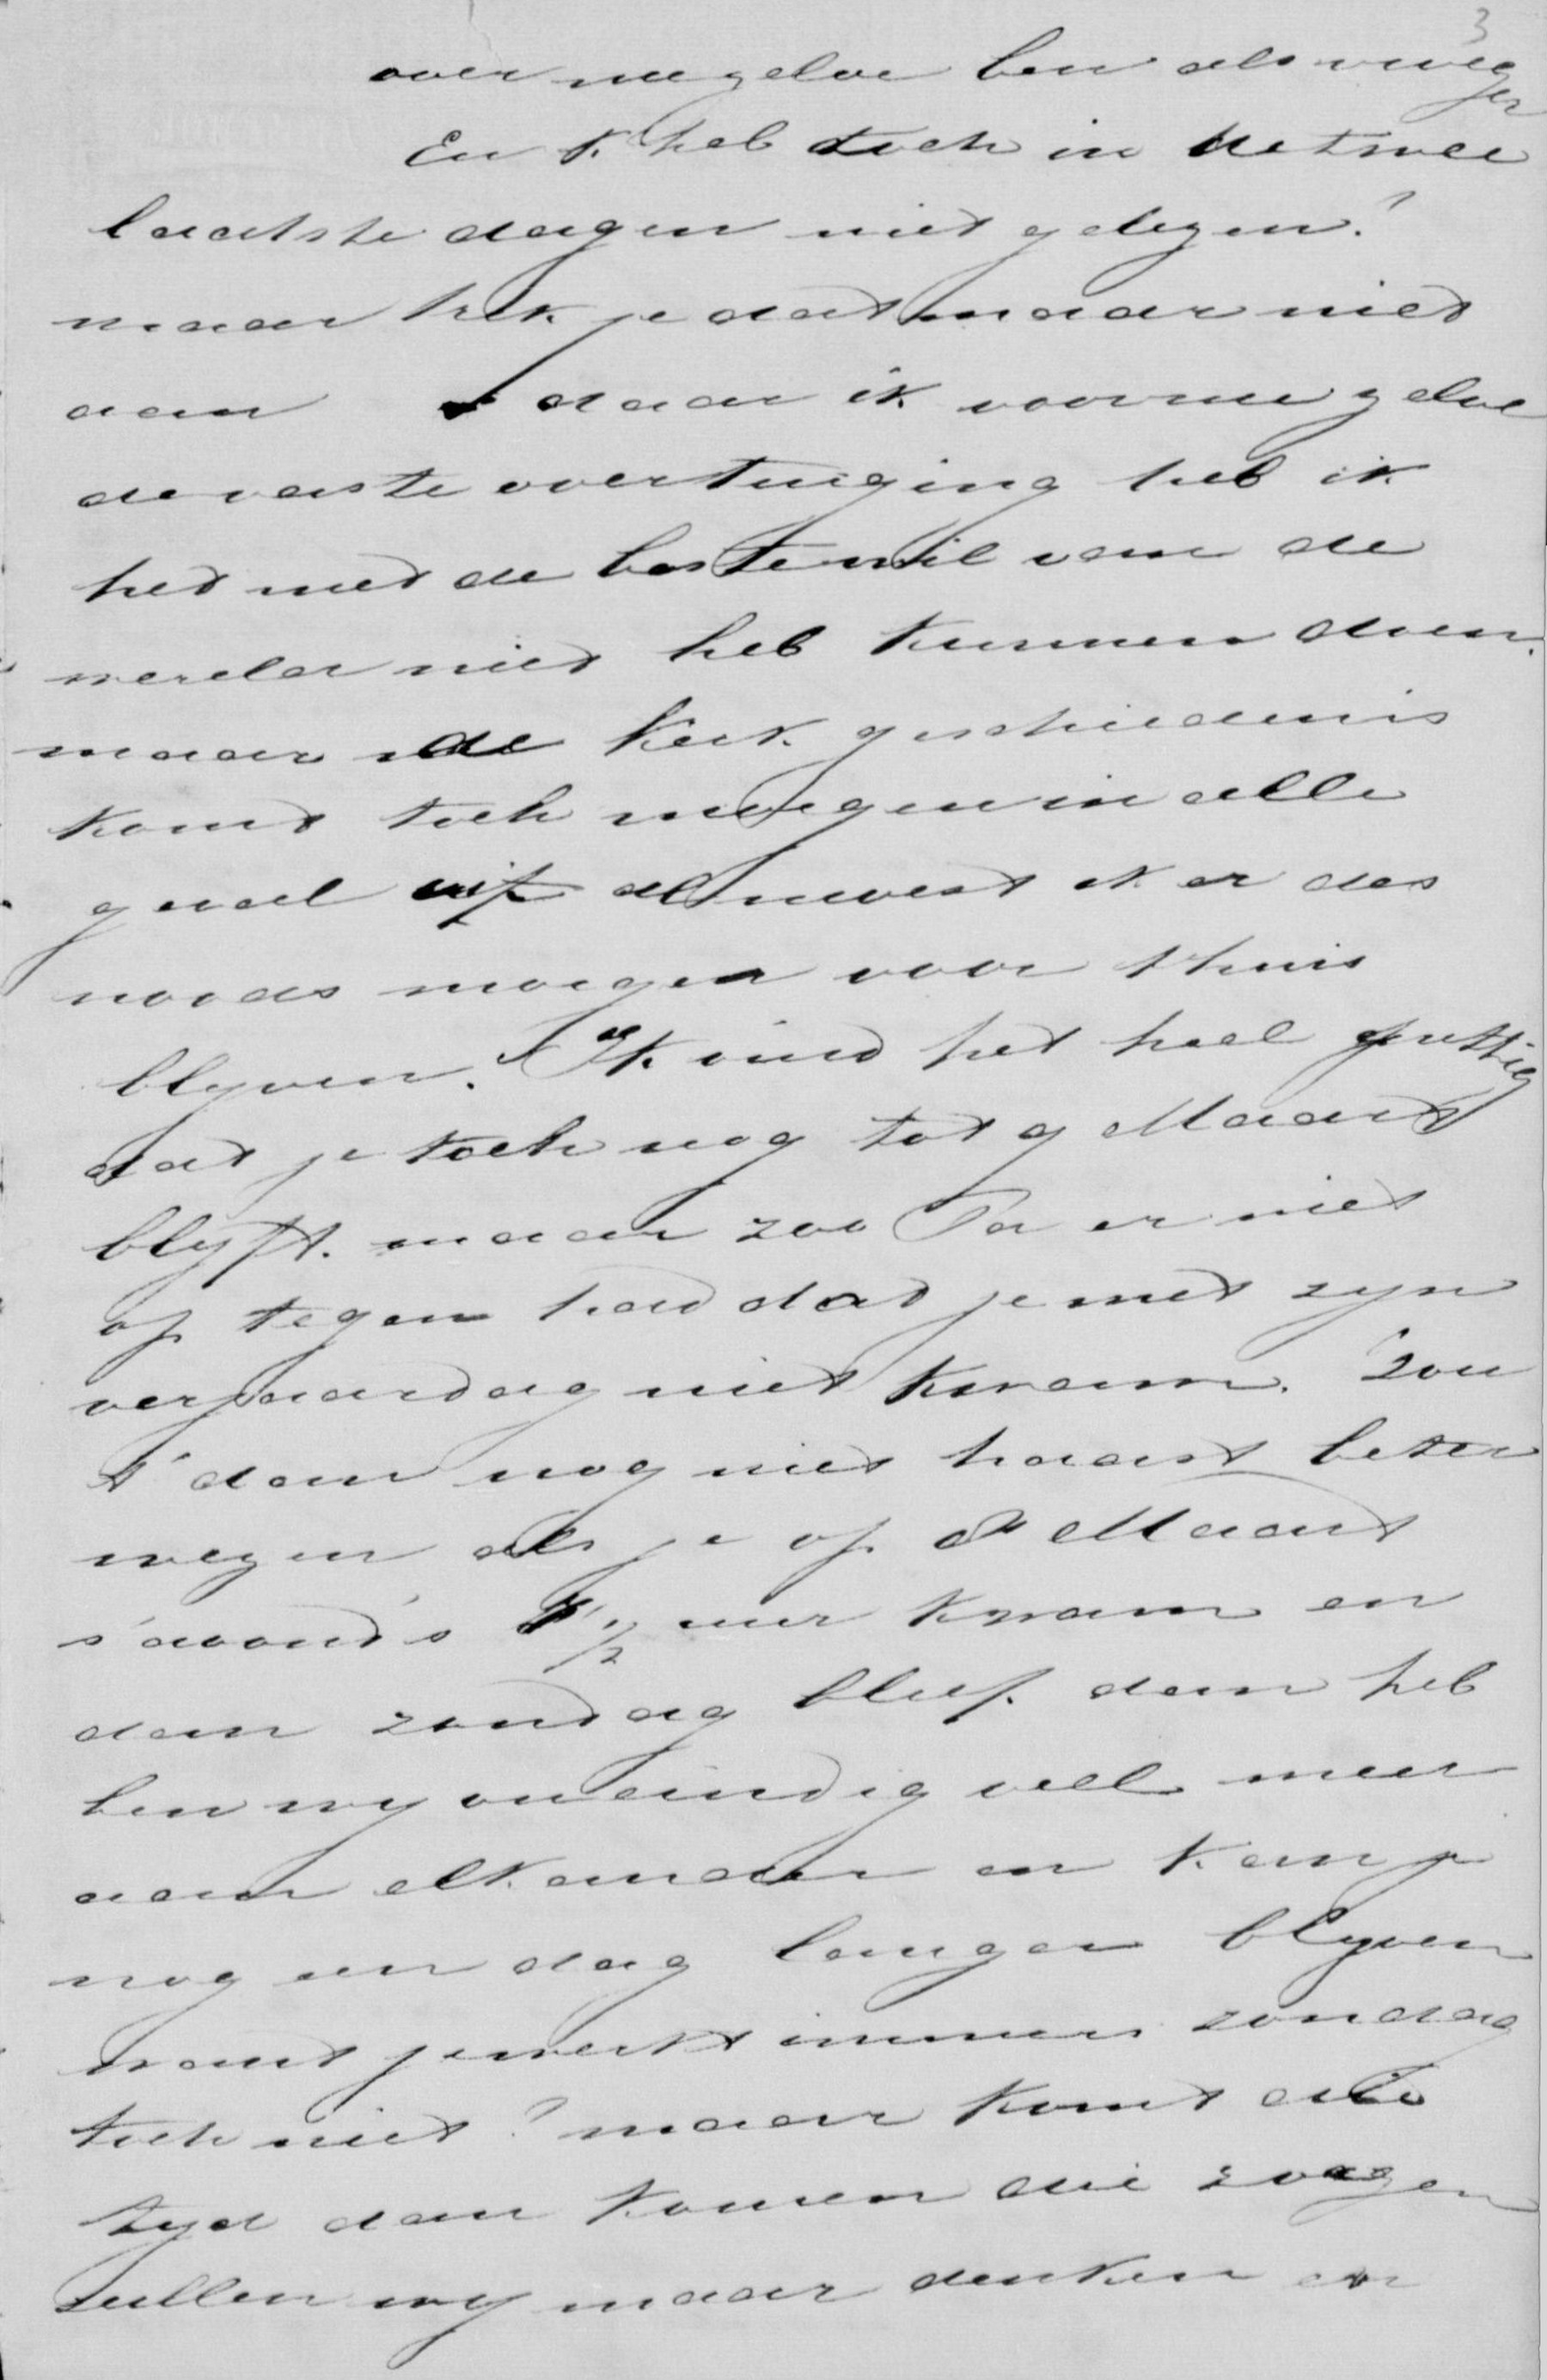 3
over me zelve ben als vroeger
En k heb toch in de twee
laatste dagen niet gelegen?
maar trek je dat maar niet
aan daar ik voor me zelve
de vaste overtuiging heb ik
het met de beste wil van de
wereld niet heb kunnen doen.
maar de kerk geschiedenis
komt toch morgen in alle
geval af al moest ik er des
noods morgen voor thuis
blyven. Ik vind het heel prettig
dat je toch nog tot 9 Maart
blyft. maar zoo Pa er niet
op tegen had dat je met zyn
verjaardag niet kwam. Zou
t' dan nog niet haast beter
wezen als je op 8 Maart
s'avond's 8 1/2 uur kwam en
dan zondag bleef. dan heb
ben wy oneindig veel meer
aan elkander en kan je
nog een dag langer blyven
want je werkt immers zondag
toch niet? maar komt die
tyd dan komen die zorgen
zullen wy maar denken en